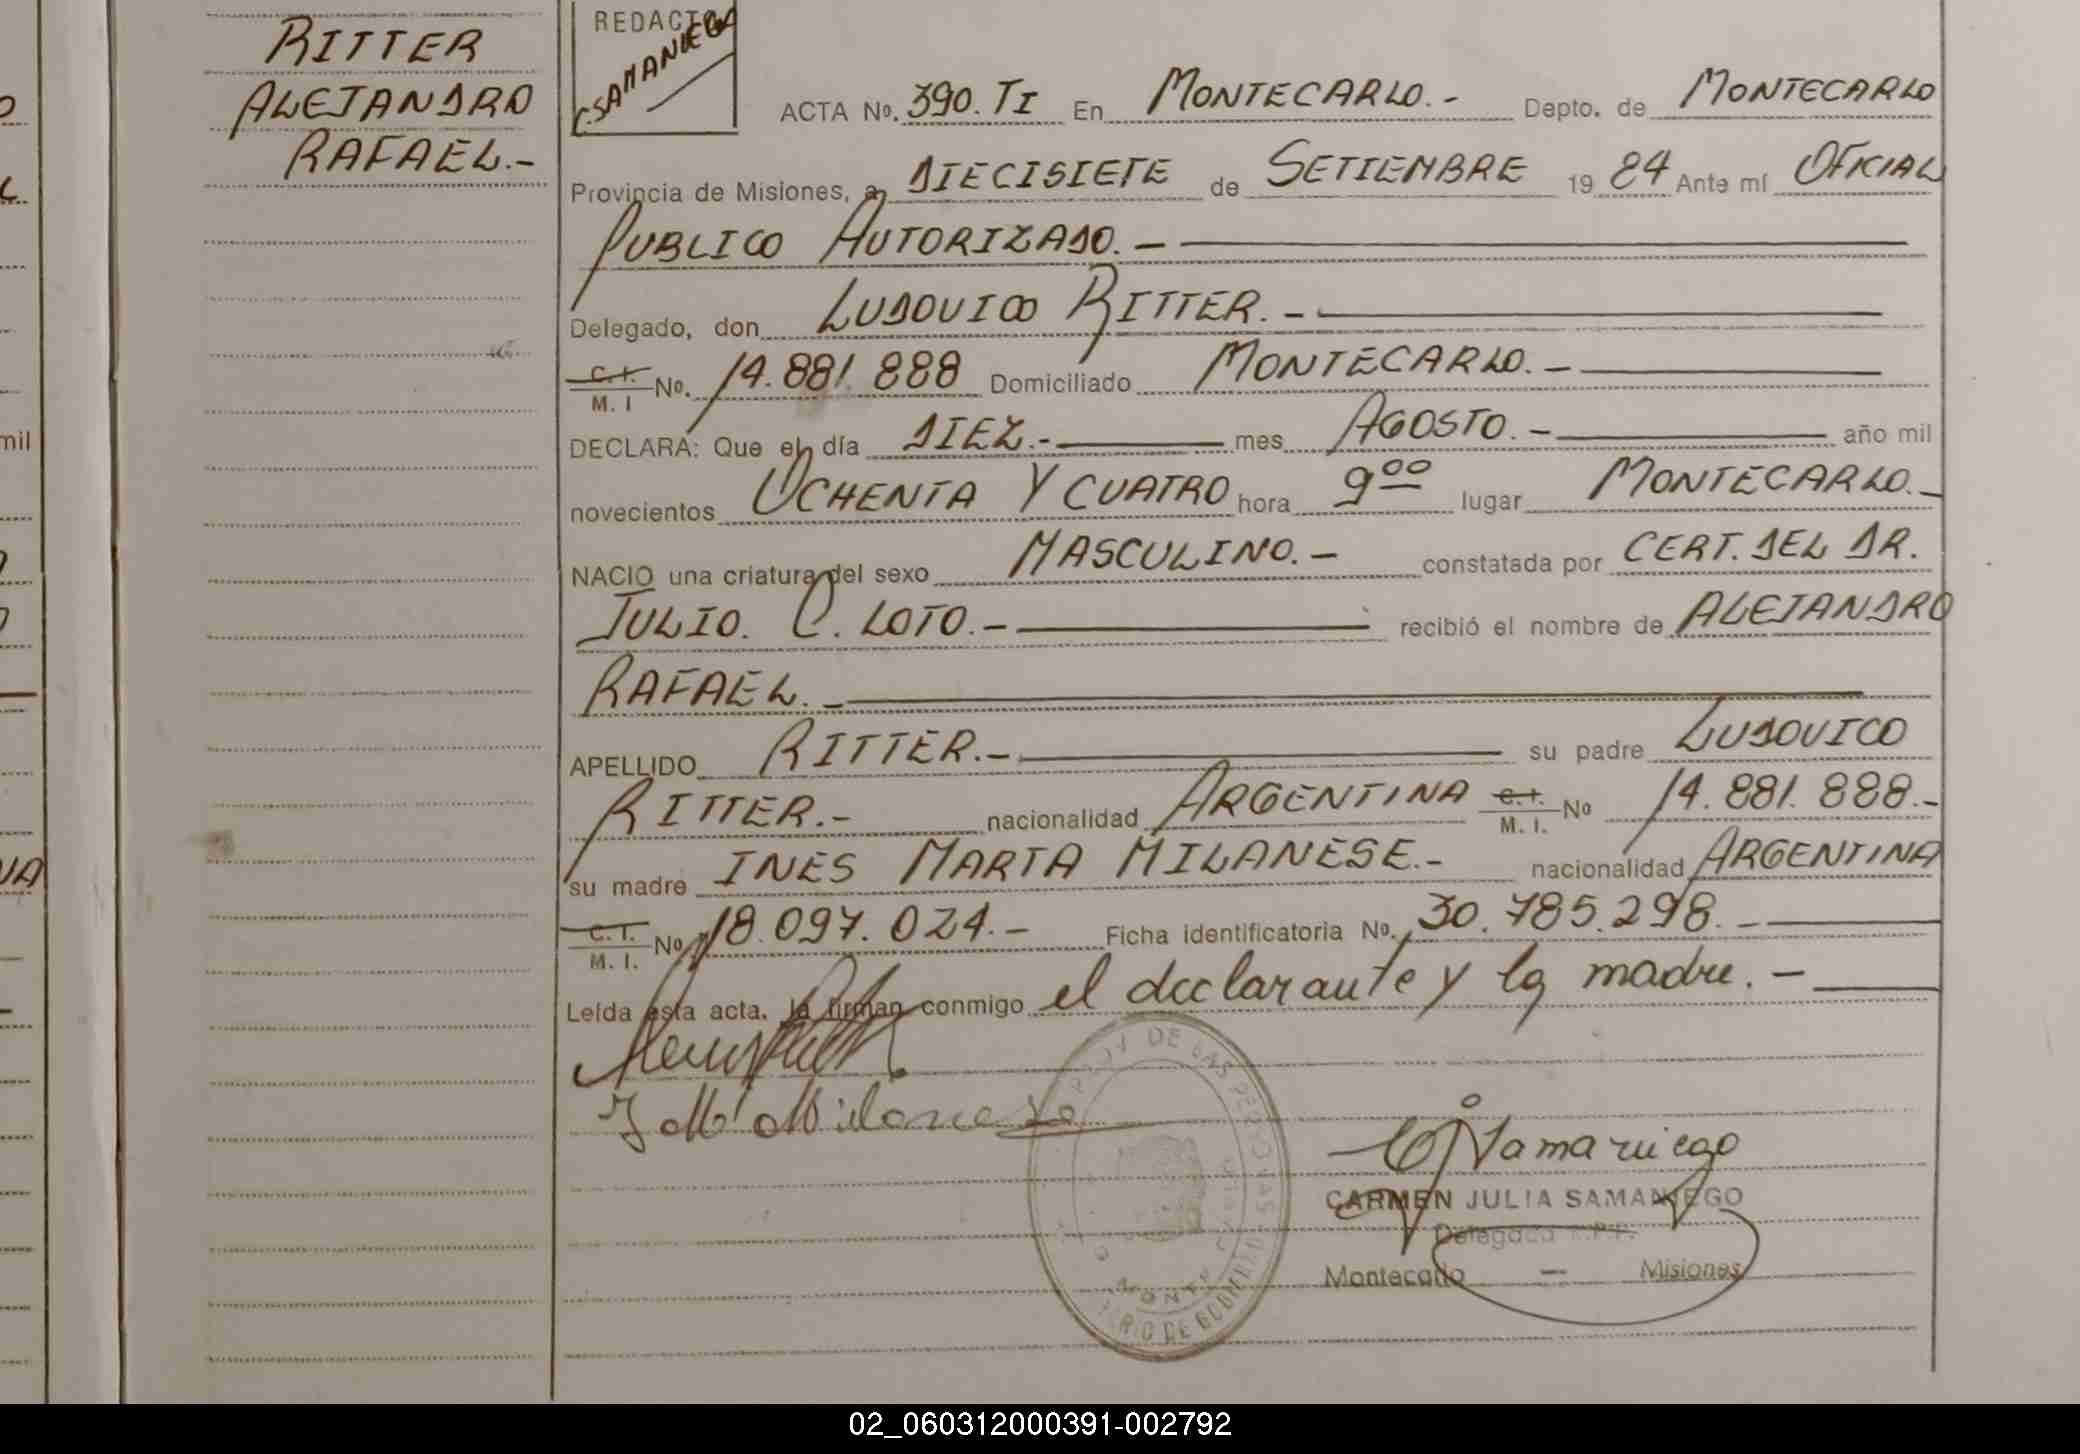 RITTER
ALEJANDRO
RAFAEL.-
REDACTO
C. SAMANIEGO
ACTA No. 390. TI En MONTECARLO.- Depto. de MONTECARLO
Provincia de Misiones, a DIECISIETE de SETIEMBRE 19 84 Ante mí OFICIAL
PUBLICO AUTORIZADO.-
Delegado, don LUDOVICO RITTER.-
C. I. No. 14.881.888 Domiciliado MONTECARLO.-
M. I
DECLARA: Que el día DIEZ.- mes AGOSTO.- año mil
novecientos OCHENTA Y CUATRO hora 9⁰⁰ lugar MONTECARLO.-
NACIO una criatura del sexo MASCULINO.- constatada por CERT. DEL DR.
JULIO. C. LOTO.- recibió el nombre de ALEJANDRO
RAFAEL.-
APELLIDO RITTER.- su padre LUDOVICO
RITTER.- nacionalidad ARGENTINA C. I. No 14.881.888.-
M. I.
su madre INES MARTA MILANESE.- nacionalidad ARGENTINA
C. I. No 18.097.024.- Ficha identificatoria No. 30.785.298.-
M. I.
Leída esta acta, la firman conmigo el declarante y la madre.-
J M Milanese
CSamaniego
CARMEN JULIA SAMANIEGO
Delegada R.P.P.
Montecarlo - Misiones
DE LAS PERSONAS
MONTE
RIO DE GOBIERNO
mil
02_060312000391-002792